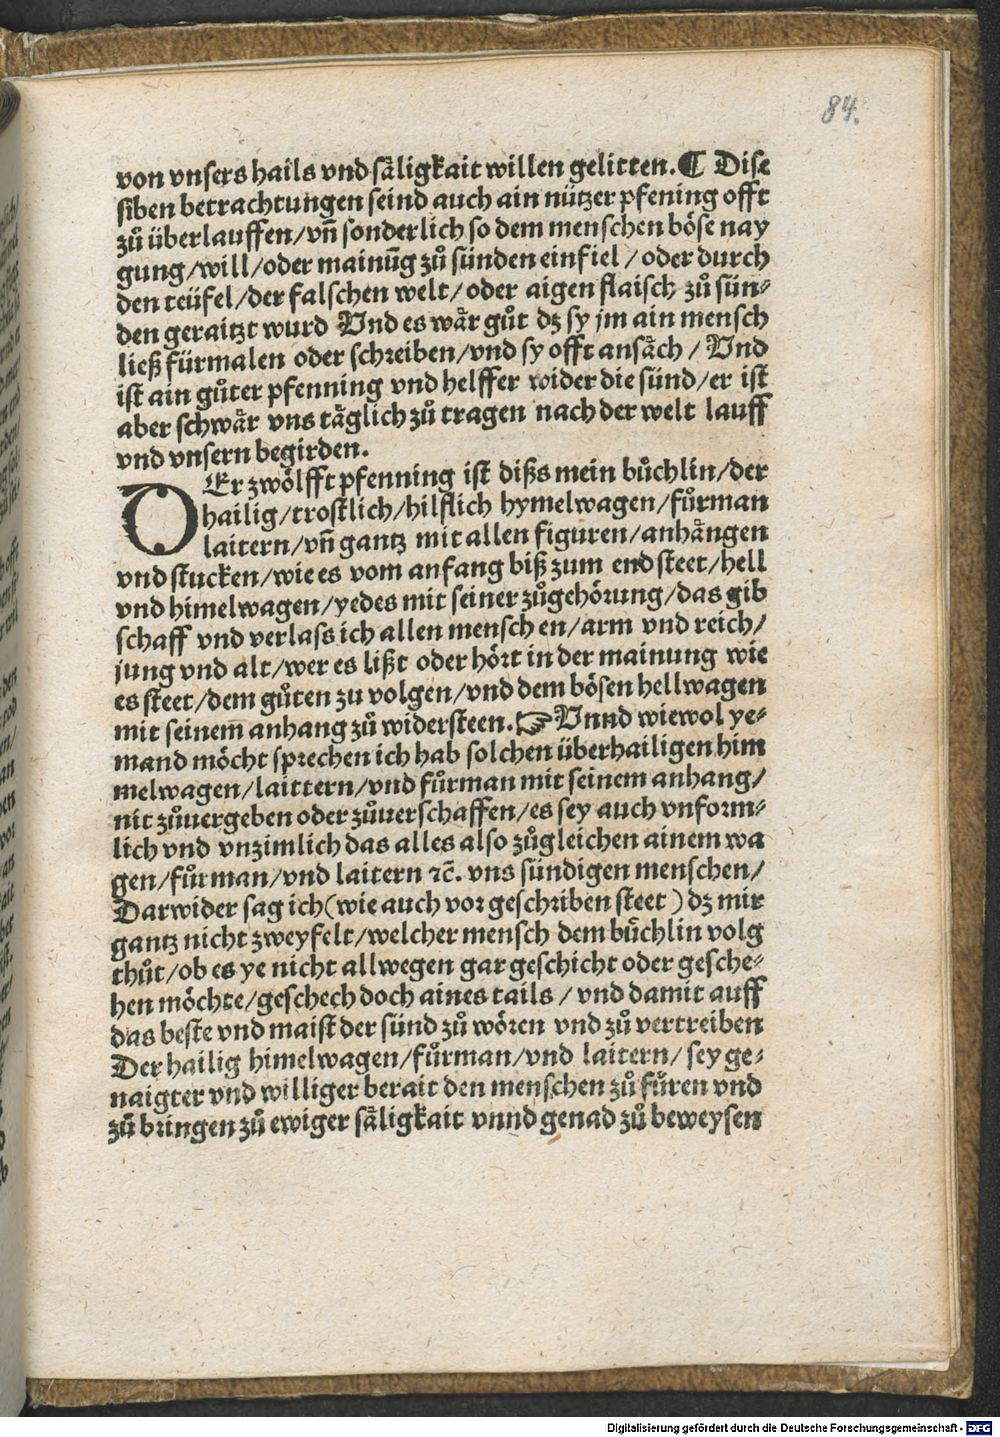 84.
von vnsers hails vnd sa̎ligkait willen gelitten.¶ Dise
siben betrachtungen seind auch ain nützer pfening offt
zů überlauffen/vn̄ sonderlich so dem menschen böse nay
gung/will/oder mainūg zů sünden einfiel / oder durch
den teüfel/der falschen welt/oder aigen flaisch zů sün⸗
den geraitzt wurd Vnd es wa̎r gůt dz sy jm ain mensch
ließ fürmalen oder schreiben/vnd sy offt ansa̎ch / Vnd
ist ain gůter pfenning vnd helffer wider die sünd/er ist
aber schwa̎r vns ta̎glich zů tragen nach der welt lauff
vnd vnsern begirden.
DEr zwölfft pfenning ist dißs mein bůchlin/der
hailig/trostlich/hilflich hymelwagen/fůrman
laitern/vn̄ gantz mit allen figuren/anha̎ngen
vnd stucken/wie es vom anfang biß zum end steet/hell
vnd himelwagen/yedes mit seiner zůgehörung/das gib
schaff vnd verlass ich allen mensch en/arm vnd reich/
jung vnd alt/wer es lißt oder hört in der mainung wie
es steet/dem gůten zu volgen/vnd dem bösen hellwagen
mit seinem̄ anhang zů widersteen.☞ Vnnd wiewol ye⸗
mand möcht sprechen ich hab solchen überhailigen him
melwagen/laittern/vnd fůrman mit seinem anhang/
nit zůuergeben oder zůuerschaffen/es sey auch vnform⸗
lich vnd vnzimlich das alles also zůgleichen ainem wa
gen/fůrman/vnd laitern ⁊c̄. vns sündigen menschen/
Darwider sag ich(wie auch vor geschriben steet) dz mir
gantz nicht zweyfelt/welcher mensch dem bůchlin volg
thůt/ob es ye nicht allwegen gar geschicht oder gesche⸗
hen möchte/geschech doch aines tails / vnd damit auff
das beste vnd maist der sünd zů wören vnd zů vertreiben
Der hailig himelwagen/fůrman/vnd laitern/ sey ge⸗
naigter vnd williger berait den menschen zů fůren vnd
zů bringen zů ewiger sa̎ligkait vnnd genad zů beweysen
Digitalisierung gefördert durch die Deutsche Forschungsgemeinschaft - DFG